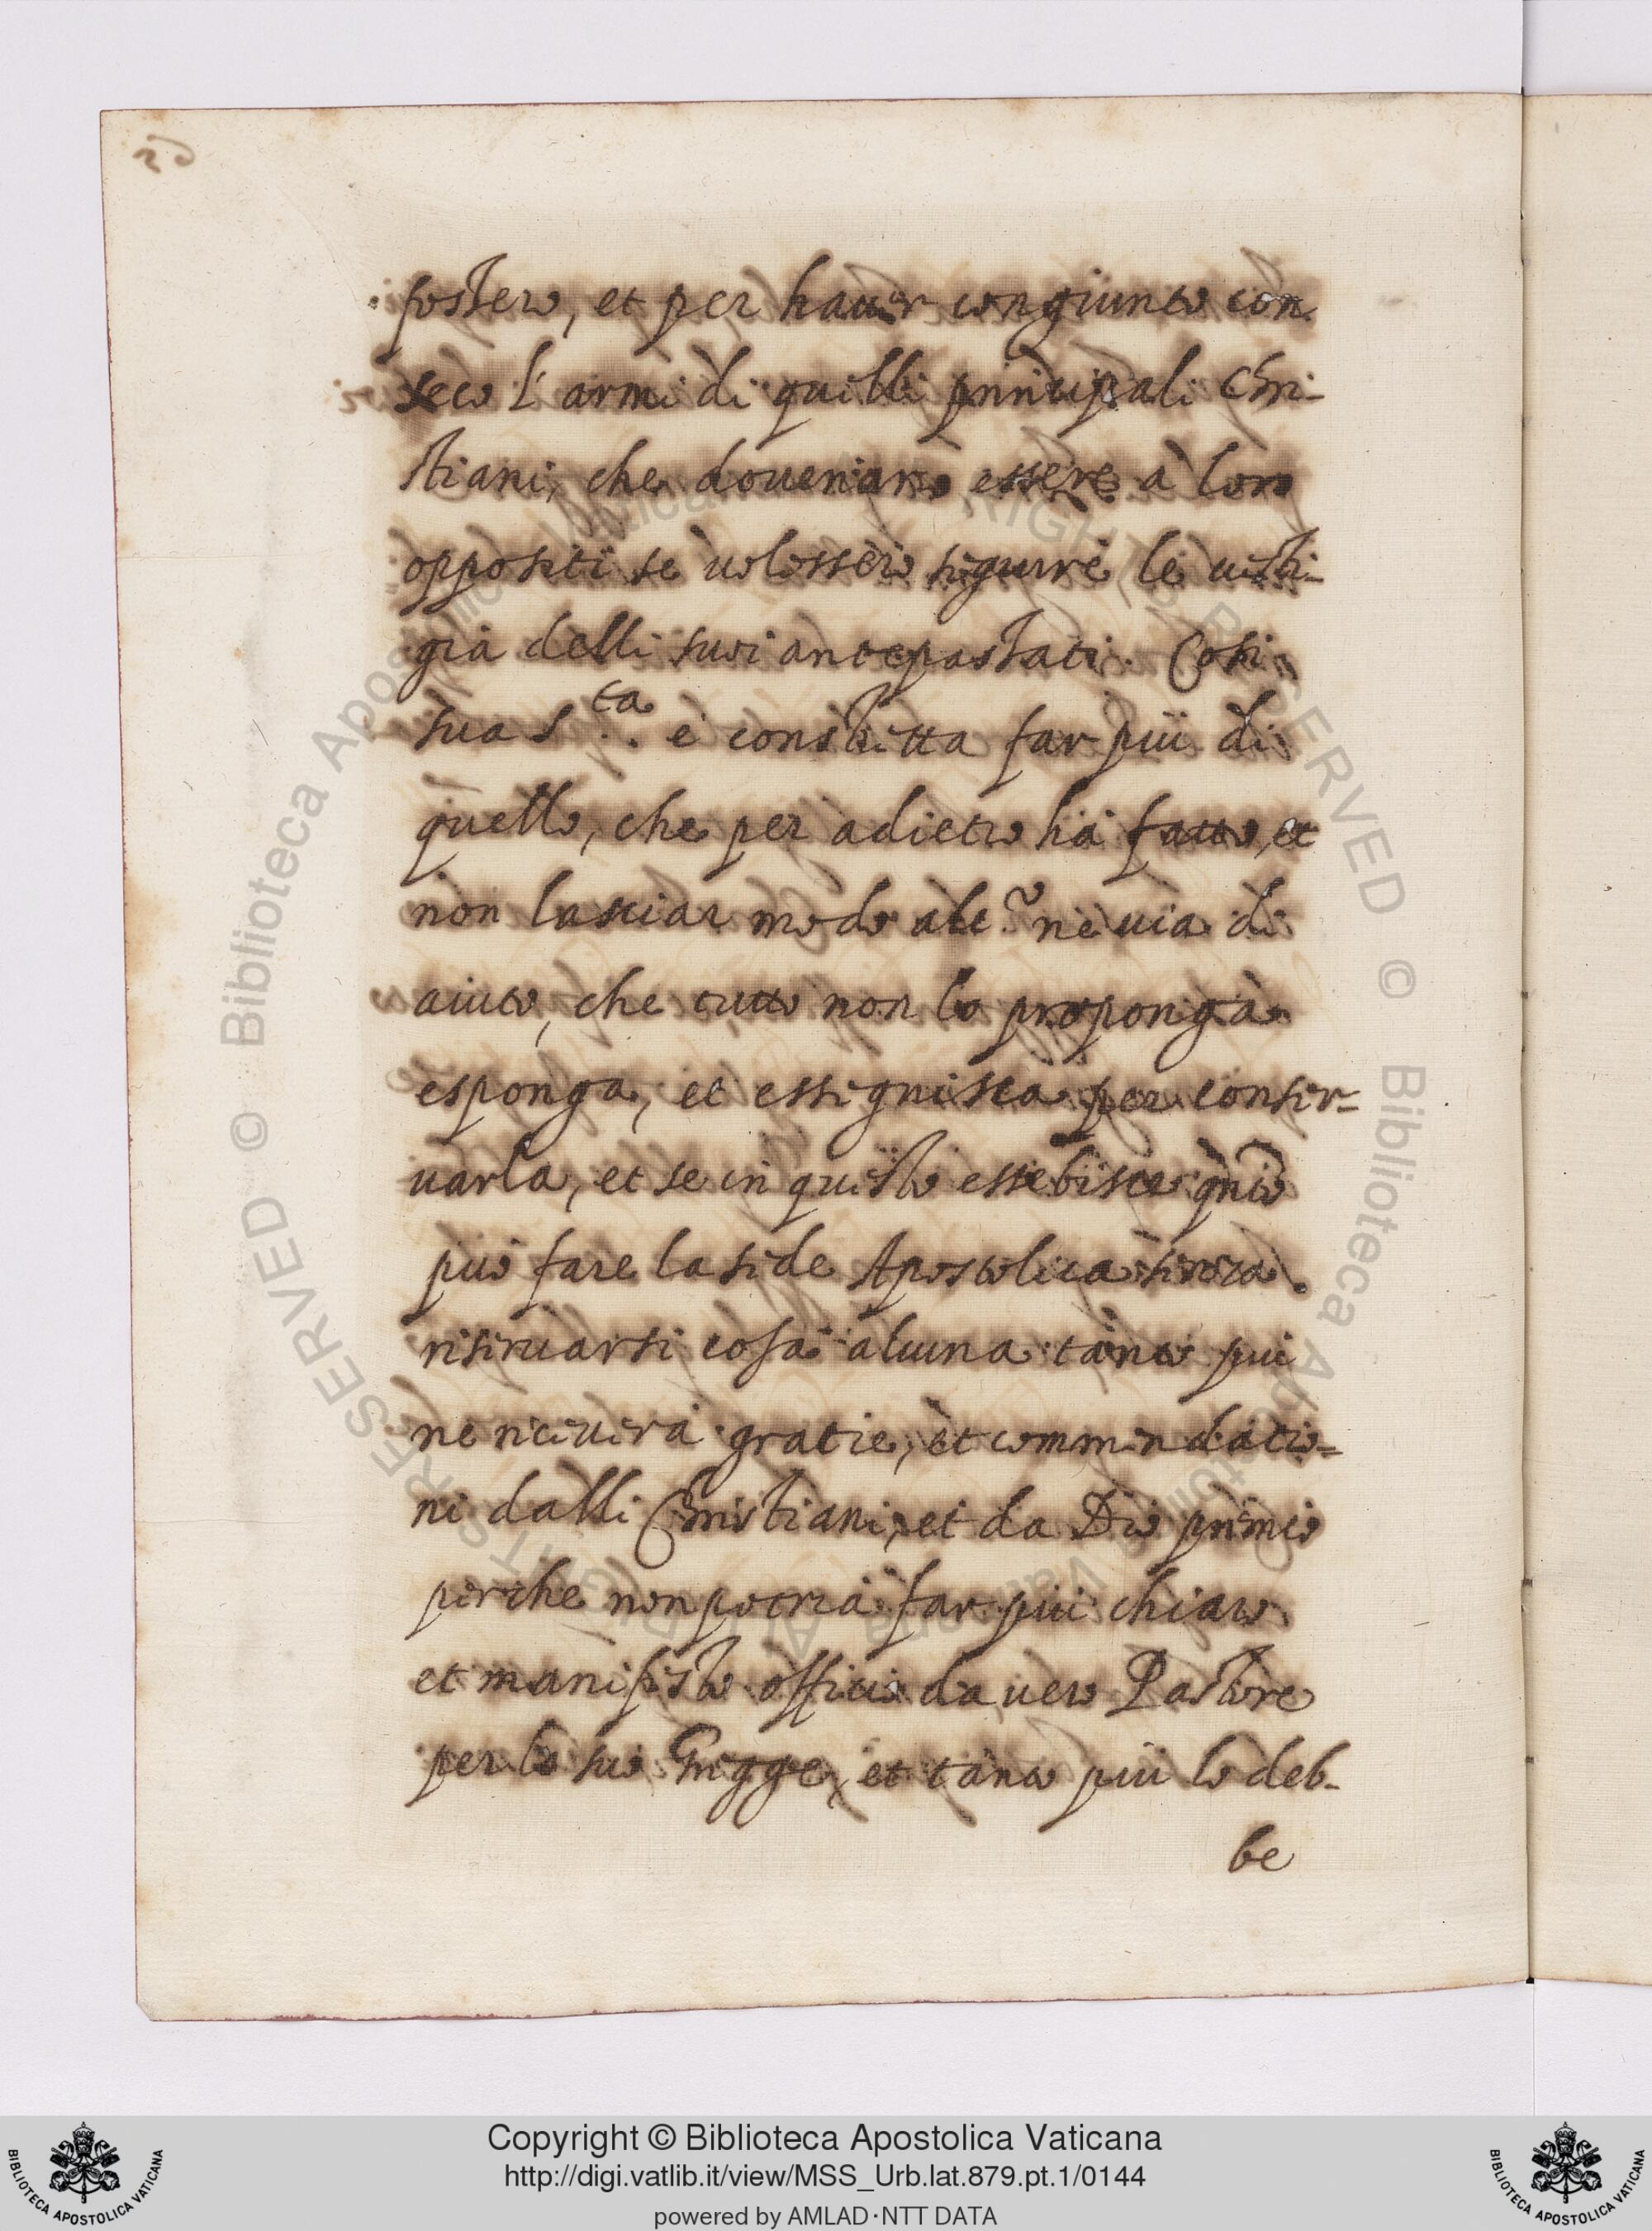 fossero, et per hauer congiunto con
seco l'armi di quelli principali Chri-
stiani, che doueriano essere à loro
oppositi se uolessero seguire le uesti-
gia delli suoi antepassati. Così
sua S.ta è constretta far più di
quello, che per adietro hà fatto, et
non lasciar modo alc.o nè uia di
aiuto, che tutto non lo proponga
esponga, et esseguisca per conser=
uarla, et se in questo essebisce qnto
può fare la sede Apostolica senza
riseruarsi cosa alcuna tanto più
ne riceuerà gratie, et commendatio=
ni dalli Christiani, et da Dio premio
perche non potrià far più chiaro
et manifesto officio da uero Pastore
per lo suo Gregge, et tanto più lo deb-
be
Copyright © Biblioteca Apostolica Vaticana
http://digi.vatlib.it/view/MSS_Urb.lat.879.pt.1/0144
powered by AMLAD·NTT DATA
BIBLIOTECA APOSTOLICA VATICANA
BIBLIOTECA APOSTOLICA VATICANA